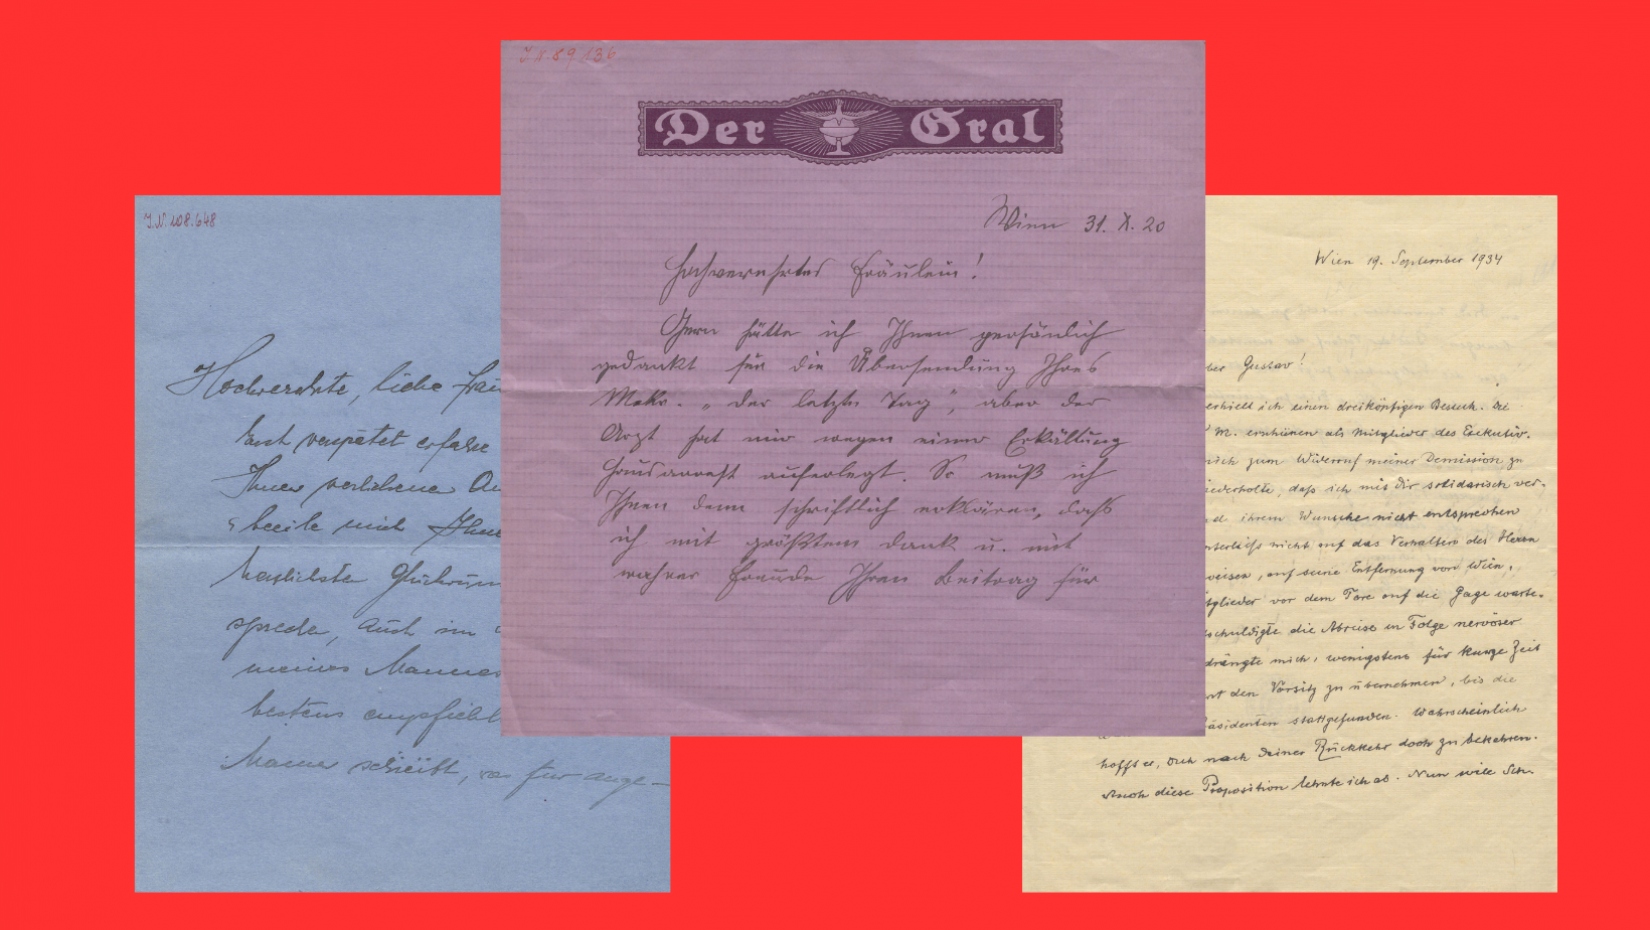 J.N. 89.136
Der Gral
Wien 31. X. 20
Hochverehrtes Fräulein!
Gern hätte ich Ihnen persönlich
gedankt für die Übersendung Ihres
Mskr. „der letzte Tag", aber der
Arzt hat mir wegen einer Erkältung
Hausarrest auferlegt. So muß ich
Ihnen denn schriftlich erklären, daß
ich mit größtem Dank u. mit
wahrer Freude Ihren Beitrag für
J.N. 208.648
Hochverehrte, liebe Frau
erst verspätet erfahre
Ihnen verliehene
beeile mich Ihnen
herzlichsten Glückwün
spreche, auch im
meines Mannes
bestens empfiehlt
Mama schreibt, was für ange-
Wien 19. September 1934
ber Gustav!
erhielt ich einen dreiköpfigen Besuch. Die
M. erschienen als Mitglieder des Exekutiv.
mich zum Widerruf meiner Demission zu
iederholte, daß ich mit dir solidarisch ver-
d ihrem Wunsche nicht entsprechen
nterließ nicht auf das Verhalten des Herrn
weisen, auf seine Entfernung von Wien,
itglieder vor dem Tore auf die Gage warte-
schuldigte die Abreise in Folge nervöser
drängte mich, wenigstens für kurze Zeit
den Vorsitz zu übernehmen, bis die
äsidenten stattgefunden. Wahrscheinlich
hofft er, dich nach deiner Rückkehr doch zu bekehren.
Auch diese Proposition lehnte ich ab. Nun will Sch.